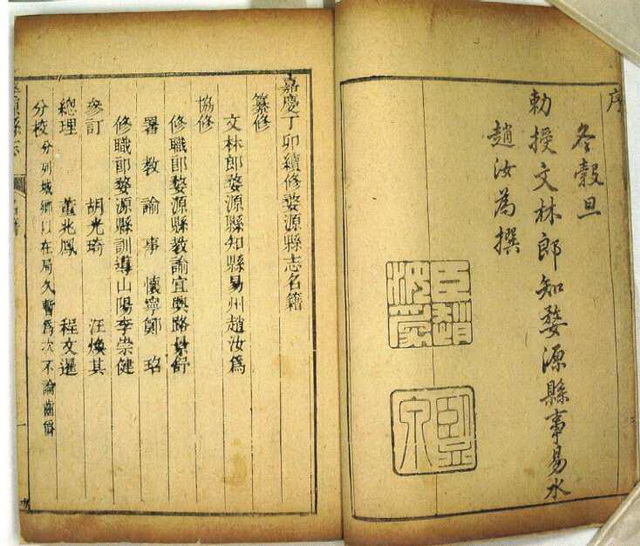 序
冬穀旦
勅授文林郎知婺源縣事易水
趙汝為撰
嘉慶丁卯續修婺源縣志名籍
纂修
文林郎婺源縣知縣易州趙汝為
協修
修職郎婺源縣教諭宜興路 舒
署教諭事懷寧鄭
修職郎婺源縣訓導山陽李崇健
參訂 胡光琦 汪煥其
總理 董兆鳳 程文暹
分校 分列城鄉以在局久暫為次不論齒爵
婺源縣志